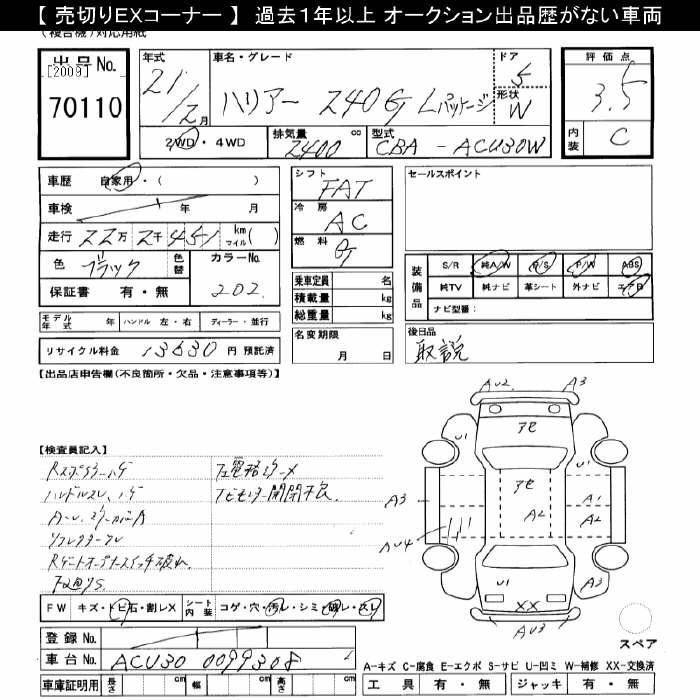 【 売切りEXコーナー 】 過去1年以上 オークション出品歴がない車両
(複合機)対応用紙
出品No.
[2009]
70110
年式
21/2月
車名・グレード
ハリアー 240G Lパッケージ
ドア
5
形状
W
評価点
3.5
内装
C
2WD・4WD
排気量
2400
cc
型式
CBA - ACU30W
車歴 自家用・( )
車検 年 月
走行 22万 2千 451 km マイル( )
色 ブラック 色替
カラーNo.
202
保証書 有・無
シフト
FAT
冷房
AC
燃料
G
乗車定員 名
積載量 kg
総重量 kg
名変期限
月 日
セールスポイント
装備品
S/R 純A/W P/S P/W ABS
純TV 純ナビ 革シート 外ナビ エアB
ナビ型番:
モデル年式 年 ハンドル 左・右 ディーラー・並行
リサイクル料金 13630 円 預託済
後日品
取説
【出品店申告欄(不良箇所・欠品・注意事項等)】
【検査員記入】
FW キズ・トビ石・割レX シート内装 コゲ・穴・汚レ・シミ・破レ・スレ
登録 No.
車台 No. ACU30 0099308
車庫証明用 長さ cm 幅 cm 高さ cm
AU2 A3
U1 アセ U1
アセ
A3 A2 A1
A2
AU4
U1 A3
XX
AU3
スペア
A-キズ C-腐食 E-エクボ S-サビ U-凹ミ W-補修 XX-交換済
工具 有・無 ジャッキ 有・無